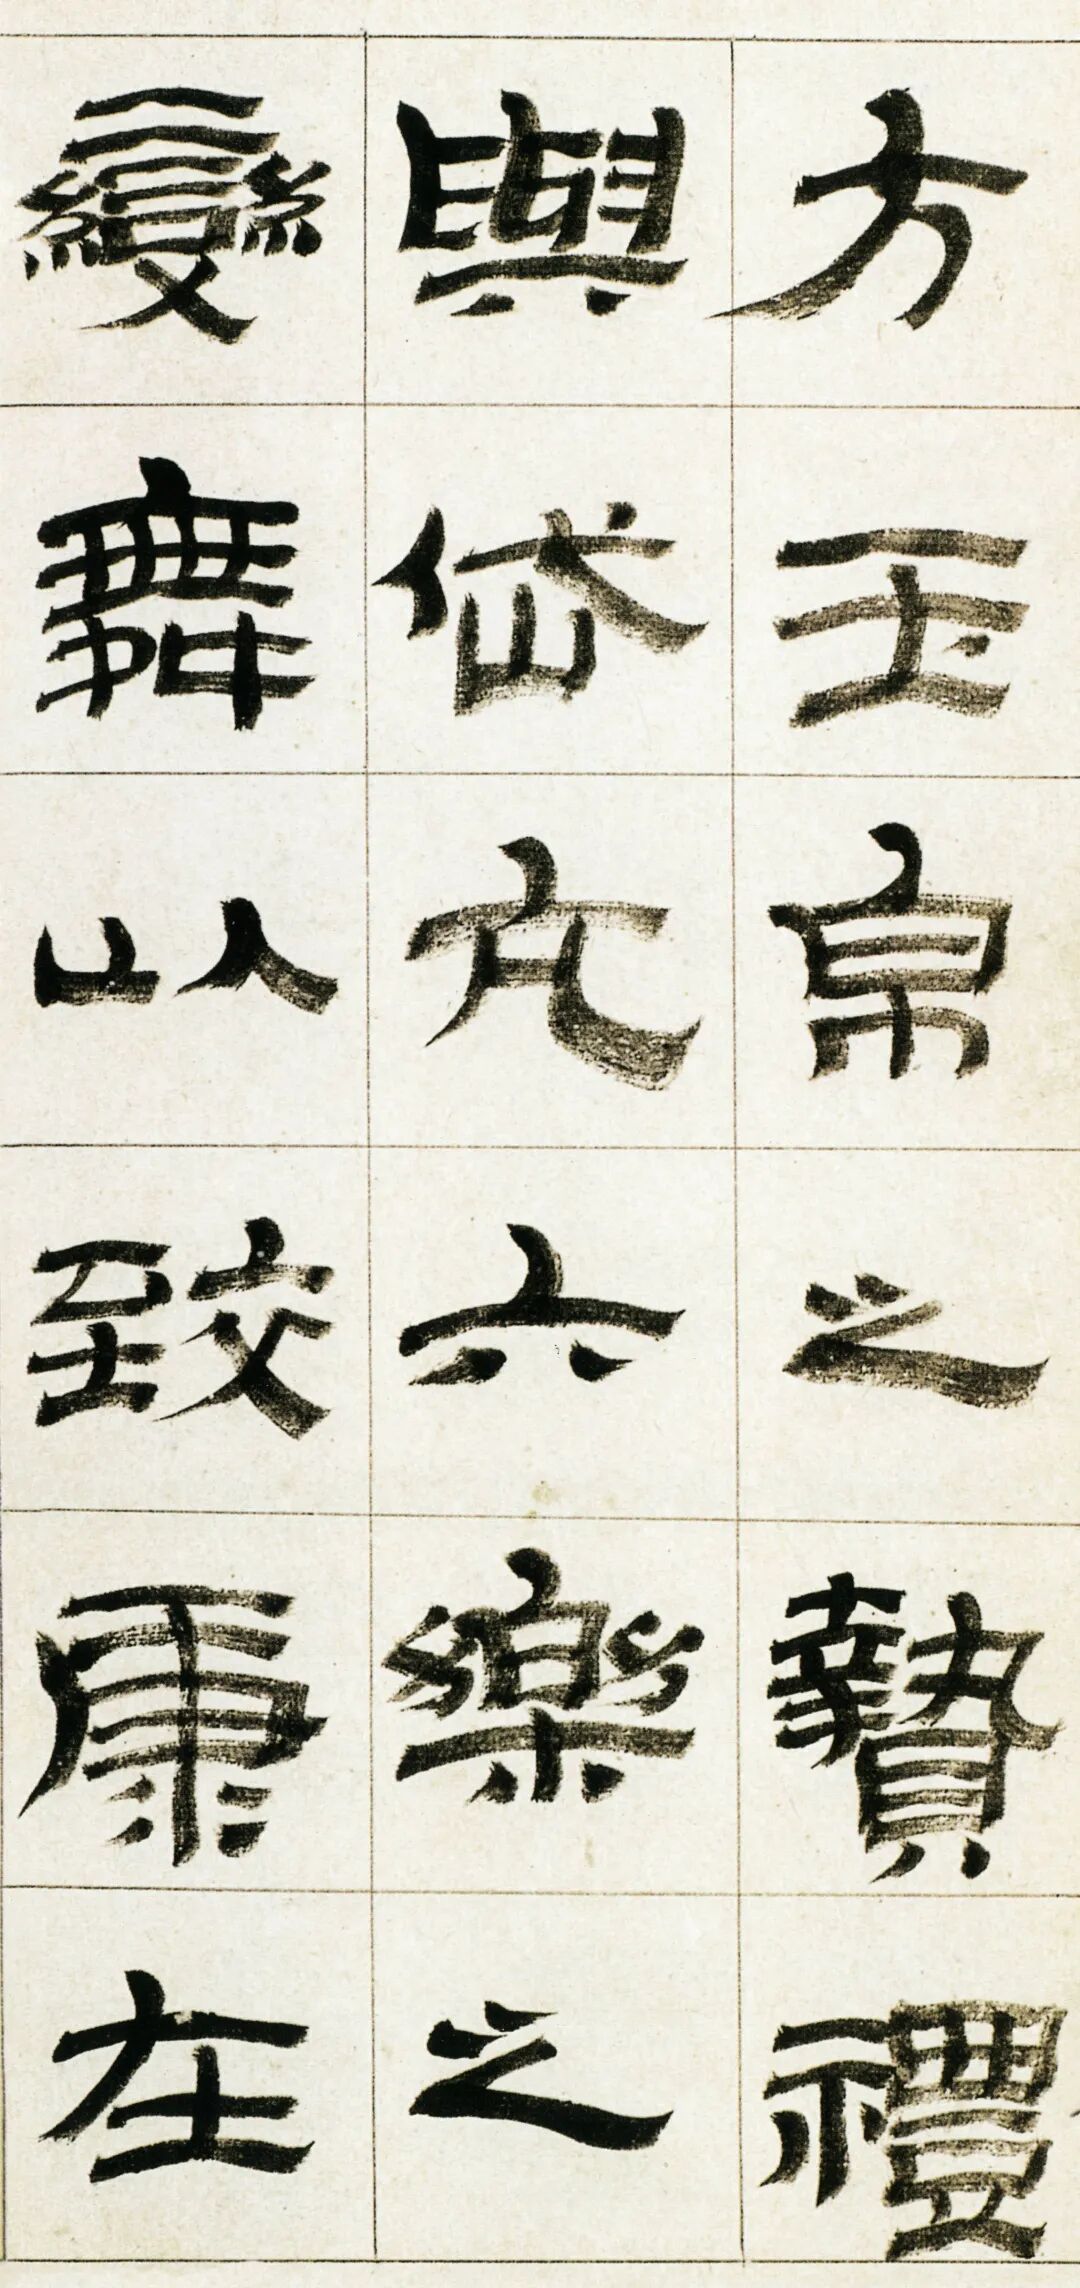 方玉帛之贄禮
與岱亢六樂之
變舞以致康在